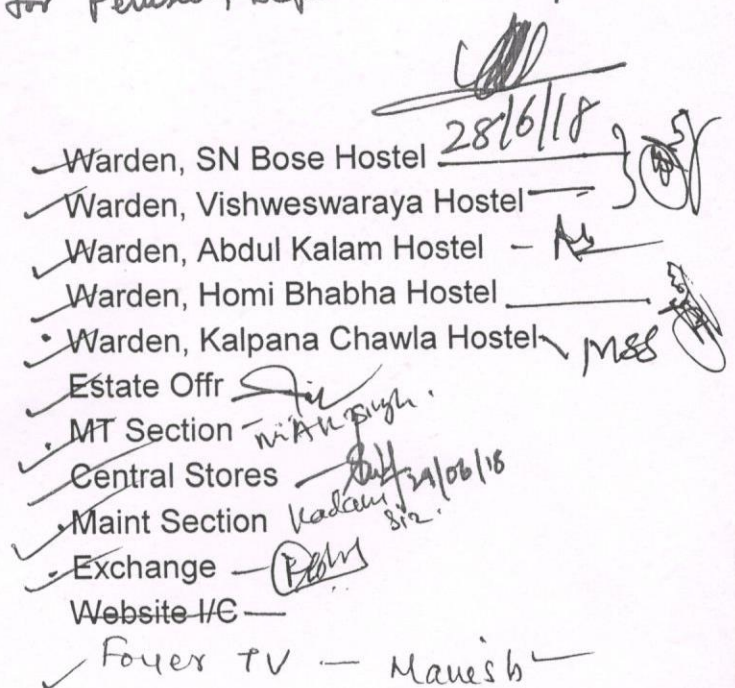 for
28/6/18
Warden, SN Bose Hostel
Warden, Vishweswaraya Hostel
Warden, Abdul Kalam Hostel
Warden, Homi Bhabha Hostel
Warden, Kalpana Chawla Hostel MSS
Estate Offr
MT Section Singh.
Central Stores 29/06/18
Maint Section Kadam Sir.
Exchange
Website I/C
Foyer TV — Manesh